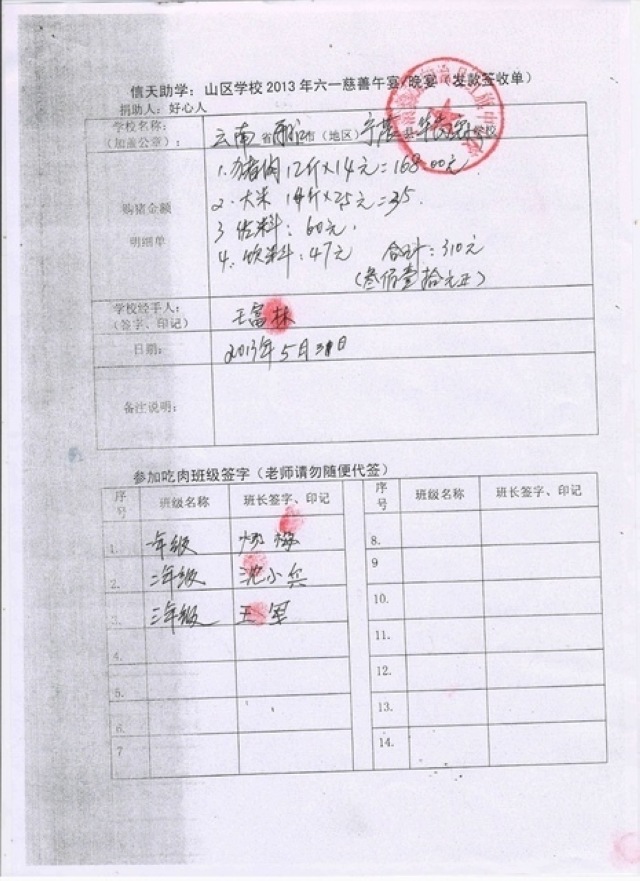 信天助学：山区学校2013年六一慈善午宴/晚宴（发款签收单）
捐助人：好心人
学校名称：
（加盖公章）：
云南省丽江市（地区）宁蒗县 学校
购猪金额
明细单
1.猪肉12斤×14元=168.00元
2.大米14斤×2.5元=35.
3 佐料：60元.
4.饮料：47元 合计：310元
（叁佰壹拾元正）
学校经手人：
（签字、印记）
王富林
日期：
2013年5月31日
备注说明：
参加吃肉班级签字（老师请勿随便代签）
序号 班级名称 班长签字、印记 序号 班级名称 班长签字、印记
1. 一年级 8.
2. 二年级 沈小兵 9
3. 三年级 王军 10.
4. 11.
5. 12.
6. 13.
7 14.